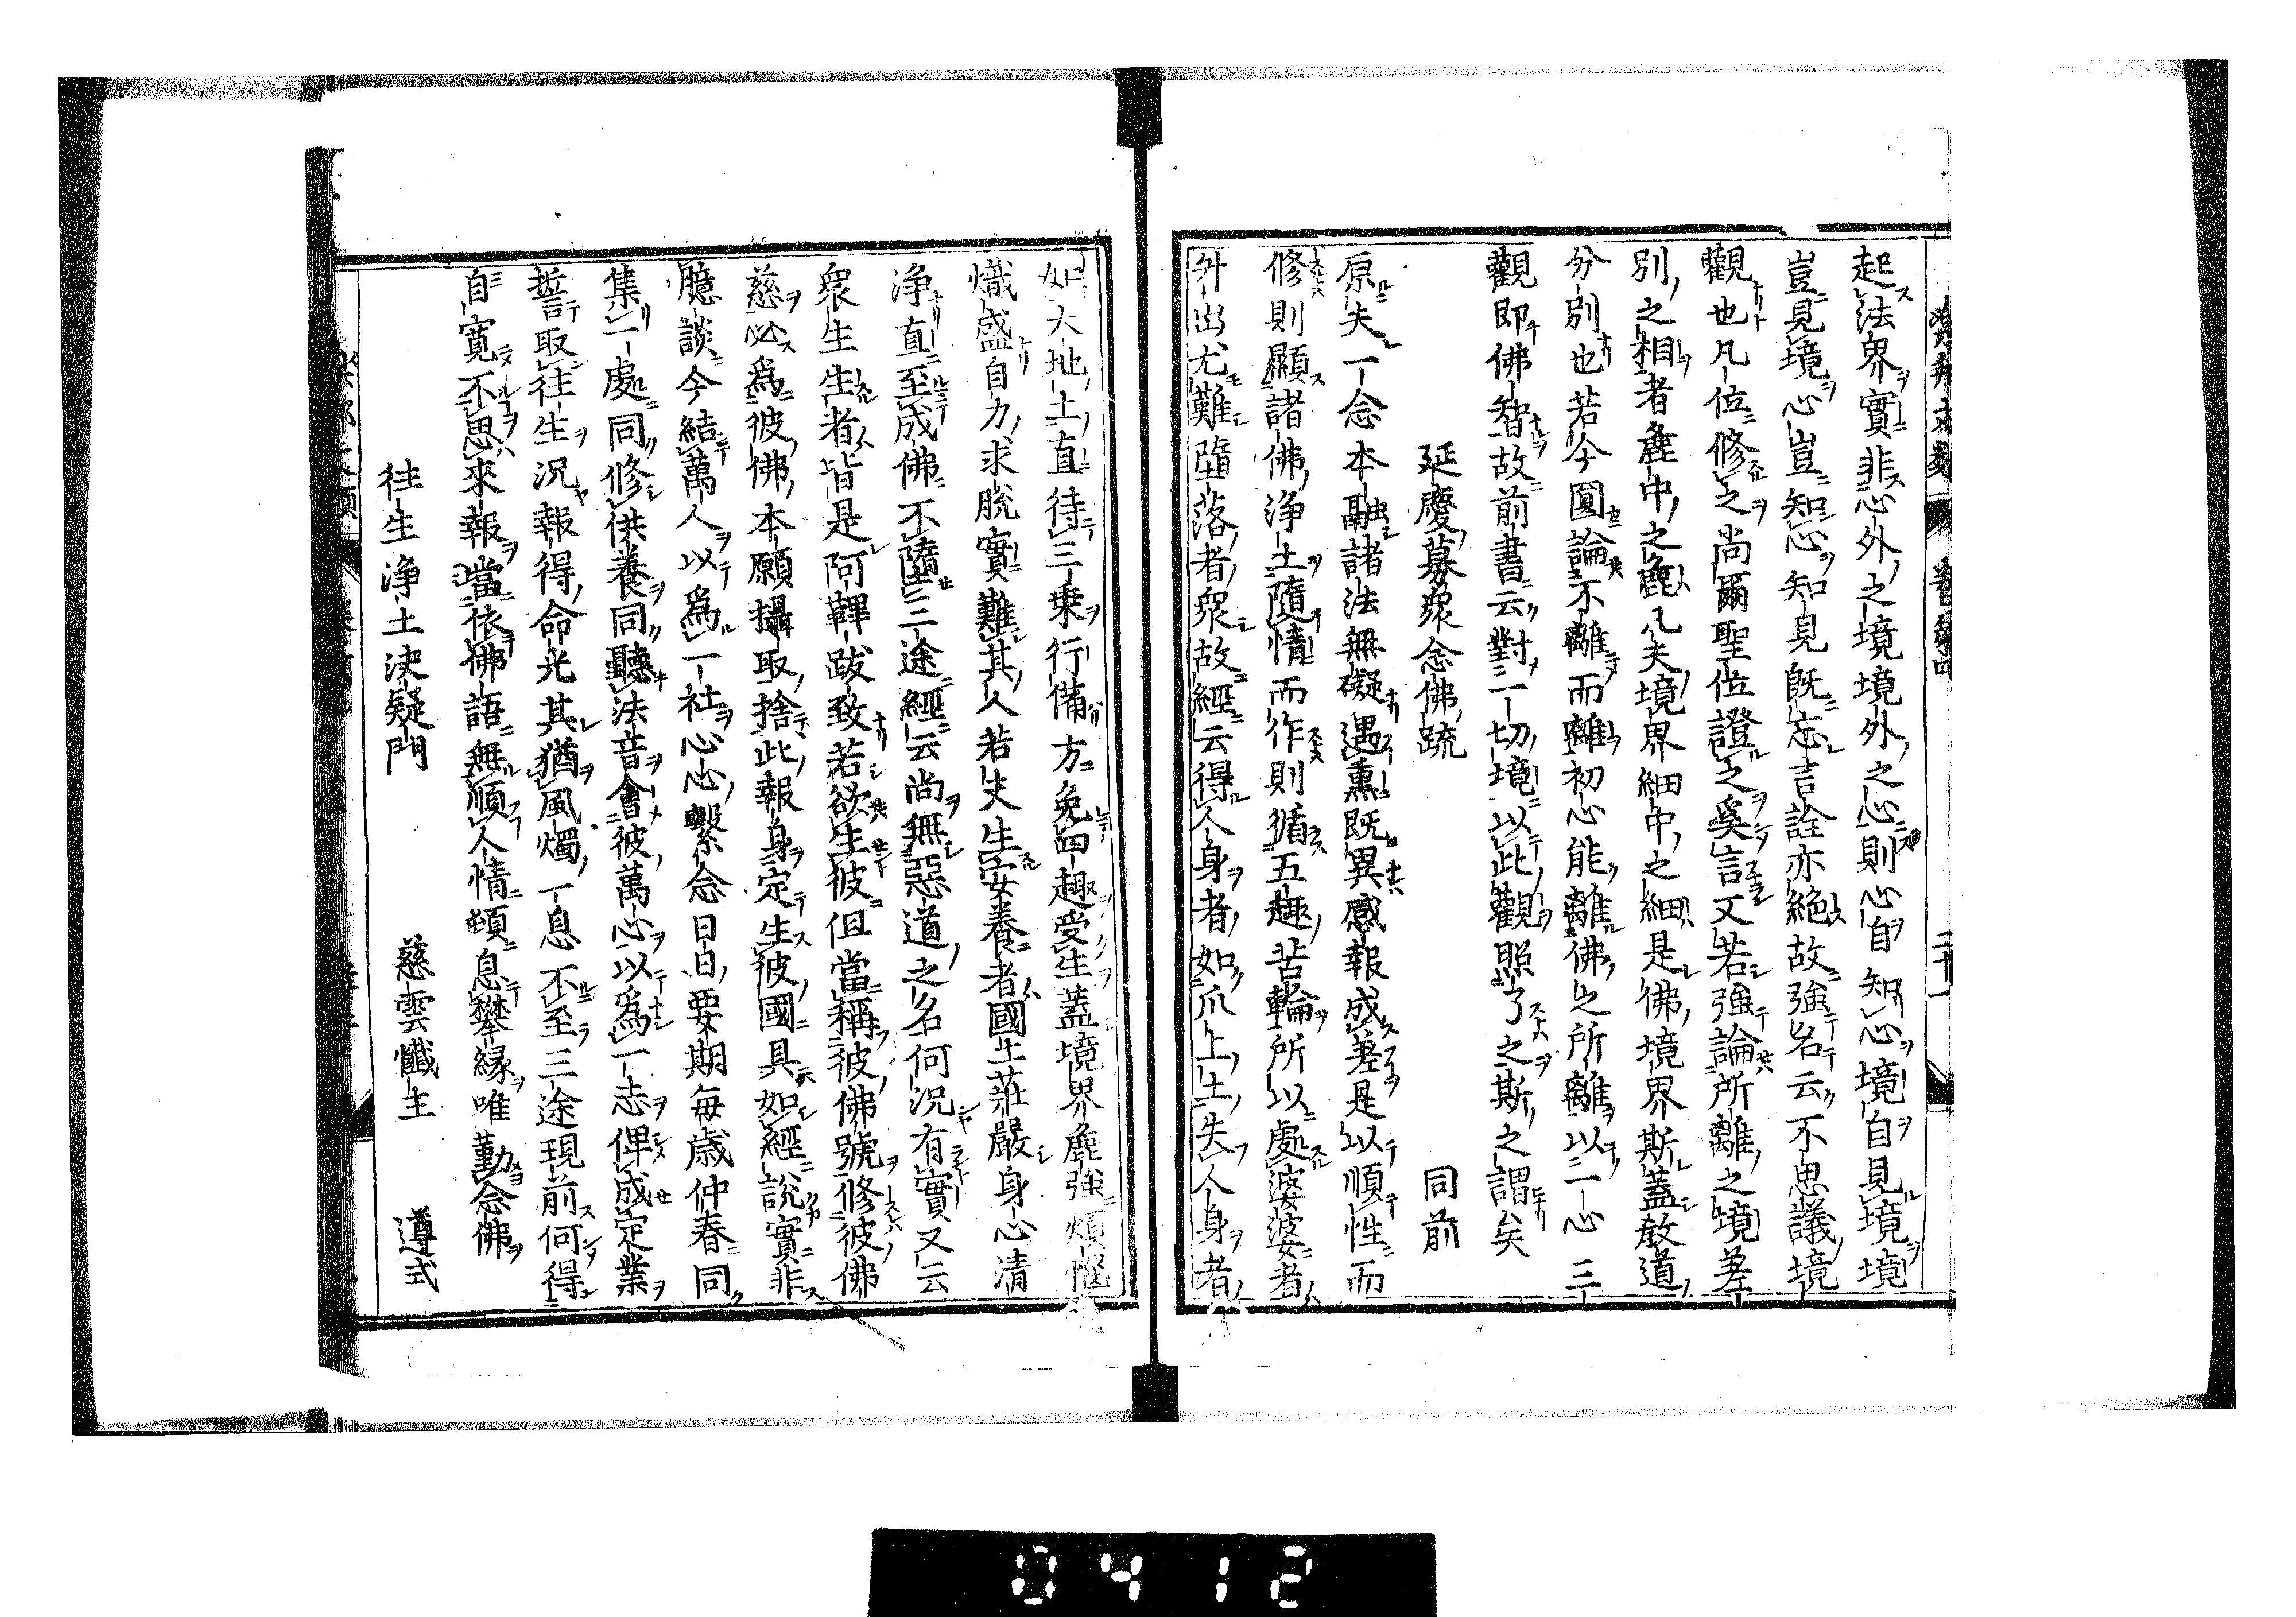 起法界實非心外之境境外之心則心自知心境自見境境
豈見境心豈知心知見既忘言詮亦絶故強名云不思議境
觀也凡位修之尚爾聖位證之奚言又若強論所離之境差
別之相者麁中之麁凡夫境界細中之細是佛境界斯蓋教道
分別也若今圓論不離而離初心能離佛之所離以二心三
觀即佛智故前書云對一切境以此觀照了之斯之謂矣
延慶募衆念佛疏 同前
原夫一念本融諸法無礙遇熏既異感報成差是以順性而
修則顯諸佛浄土隨情而作則循五趣苦輪所以處娑婆者
舛出尤難墮落者衆故經云得人身者如爪上土失人身者
如大地土直待三乗行備方免四趣受生蓋境界麁強煩惱
熾盛自力求脱實難其人若夫生安養者國土莊嚴身心清
浄直至成佛不墮三途經云尚無惡道之名何況有實又云
衆生生者皆是阿鞞跋致若欲生彼但當稱彼佛號修彼佛
慈必爲彼佛本願攝取捨此報身定生彼國具如經説實非
臆談今結萬人以爲一社心心繫念日日要期毎歳仲春同
集一處同修供養同聽法音會彼萬心以爲一志俾成定業
誓取往生況報得命光其猶風燭一息不至三途現前何得
自寛不思來報當依佛語無順人情頓息攀縁唯勤念佛
往生浄土決疑門 慈雲懺主 遵式
0412